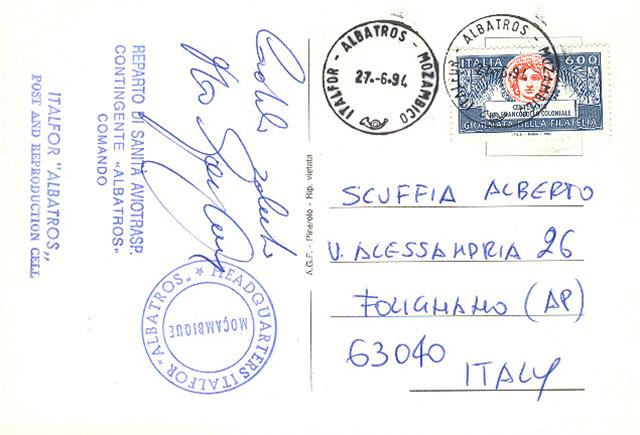 ITALFOR "ALBATROS„
POST AND REPRODUCTION CELL
REPARTO DI SANITÀ AVIOTRASP.
CONTINGENTE «ALBATROS»
COMANDO
* HEADQUARTERS ITALFOR "ALBATROS„
MOÇAMBIQUE
A.G.F. - Pinerolo - Rip. vietata
ITALFOR - ALBATROS - MOZAMBICO
27.-6.94
ITALFOR - ALBATROS - MOZAMBICO
ITALIA 600
CENTENARIO
DEL FRANCOBOLLO COLONIALE
GIORNATA DELLA FILATELIA
SCUFFIA ALBERTO
V. ALESSANDRIA 26
FOLIGNANO (AP)
63040
ITALY